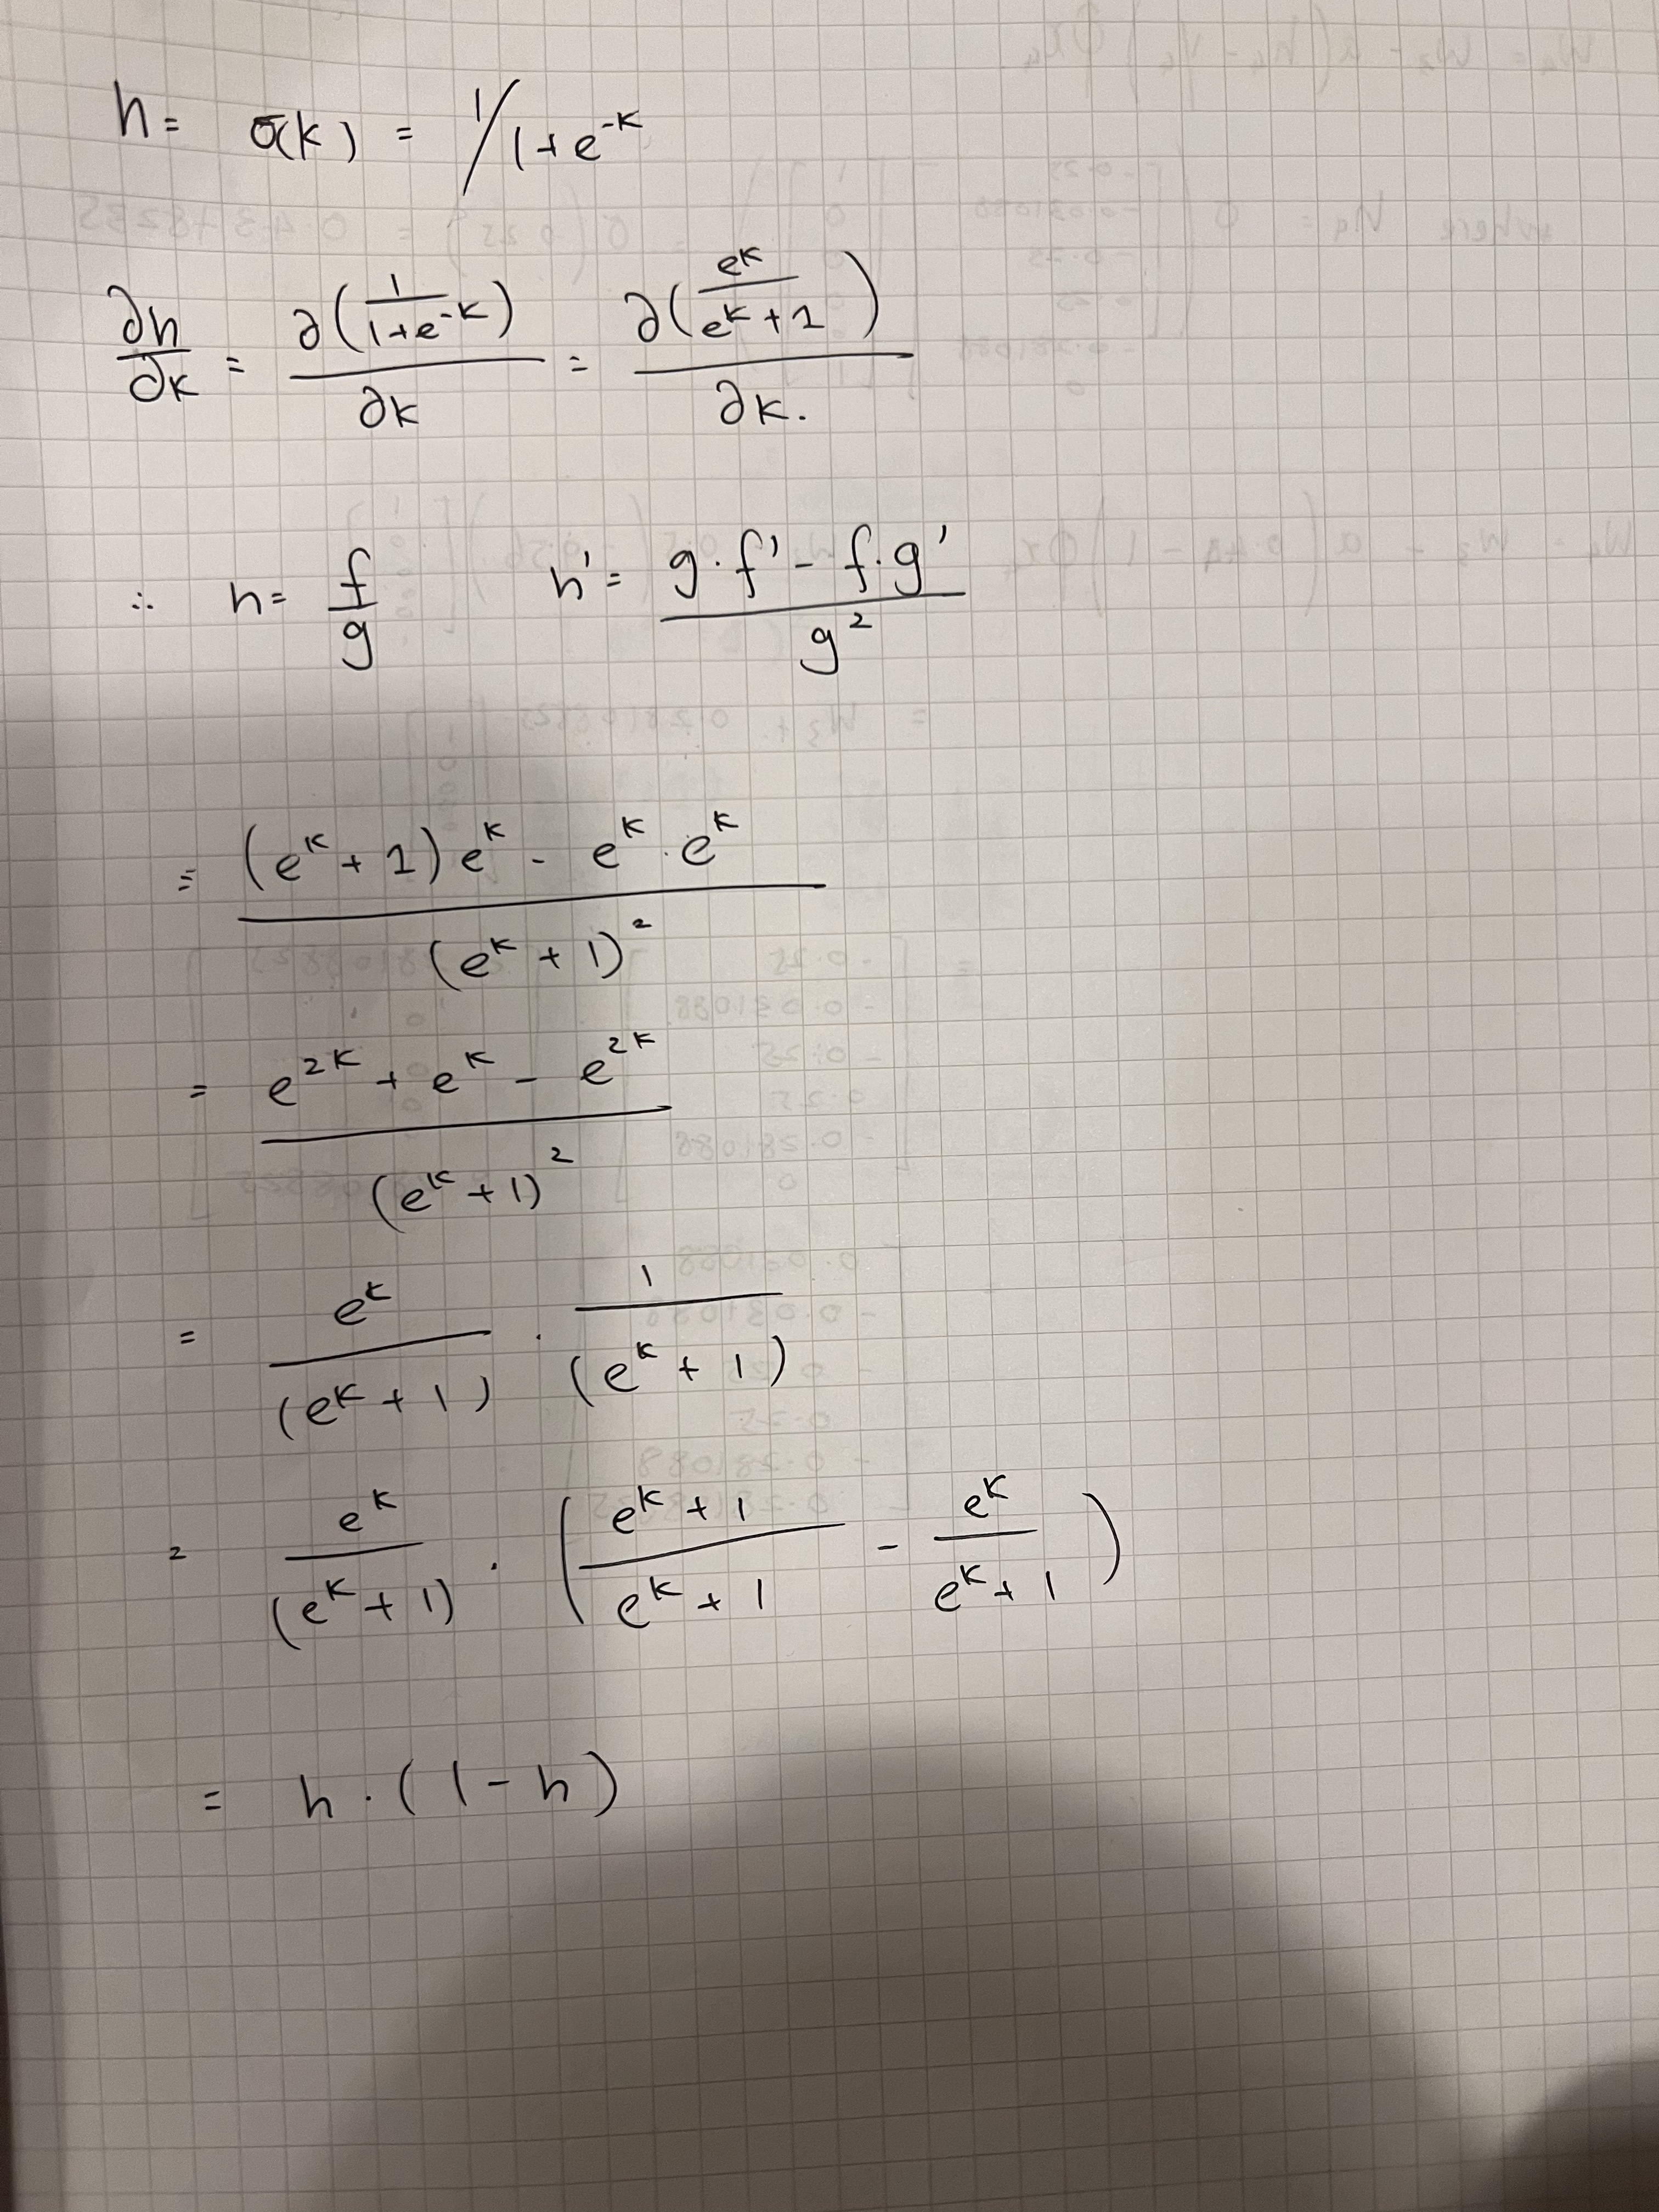 h = σ(k) = 1/1+e^-k
∂h/∂k = ∂(1/(1+e^-k))/∂k = ∂(e^k/(e^k+1))/∂k.
∴ h = f/g h' = (g·f' - f·g')/g^2
= ((e^k + 1)e^k - e^k·e^k)/(e^k + 1)^2
= (e^2k + e^k - e^2k)/(e^k + 1)^2
= e^k/(e^k + 1) · 1/(e^k + 1)
= e^k/(e^k + 1) · ((e^k + 1)/(e^k + 1) - e^k/(e^k + 1))
= h·(1 - h)